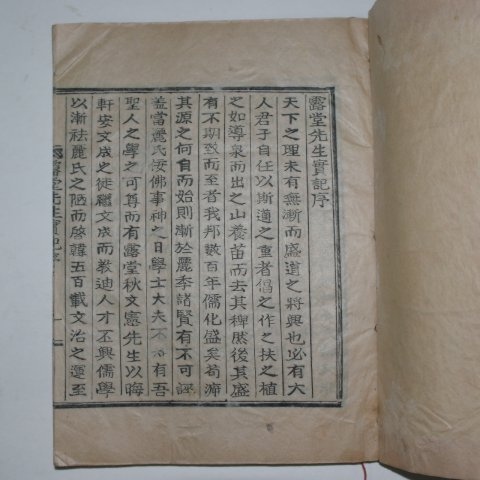 露堂先生實記序
天下之理未有無漸而盛道之將興也必有大
人君子自任以斯道之重者倡之作之扶之植
之如導泉而出之山養苗而去其稗然後其盛
有不期致而至者我邦數百年儒化盛矣苟溯
其源之何自而始則漸於麗季諸賢有不可誣
益當麗氏佞佛事神之日學士大夫不 有吾
聖人之學之可尊而有露堂秋文憲先生以晦
軒安文成之徒繼文成而敎迪人才丕興儒學
以漸祛麗氏之陋而啓韓五百載文治之運至
露堂先生實記序
一